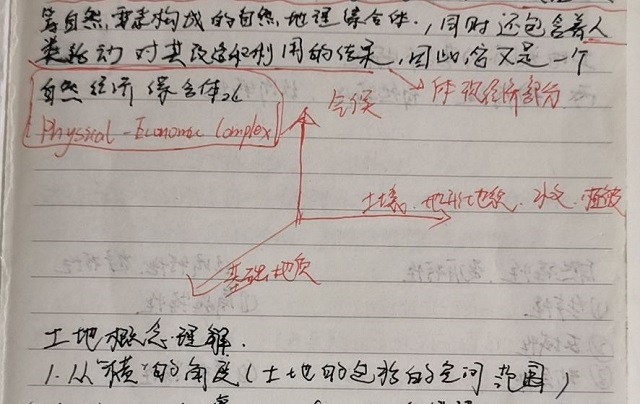 等自然要素构成的自然地理综合体，同时还包含着人
类活动对其改造和利用的结果，因此，它又是一个
自然经济综合体。
体现经济部分
Physical-Economic Complex
气候
土壤、地形地貌、水文、植被
基础地质
土地概念理解.
1.从"横"的角度(土地的包括的空间范围)